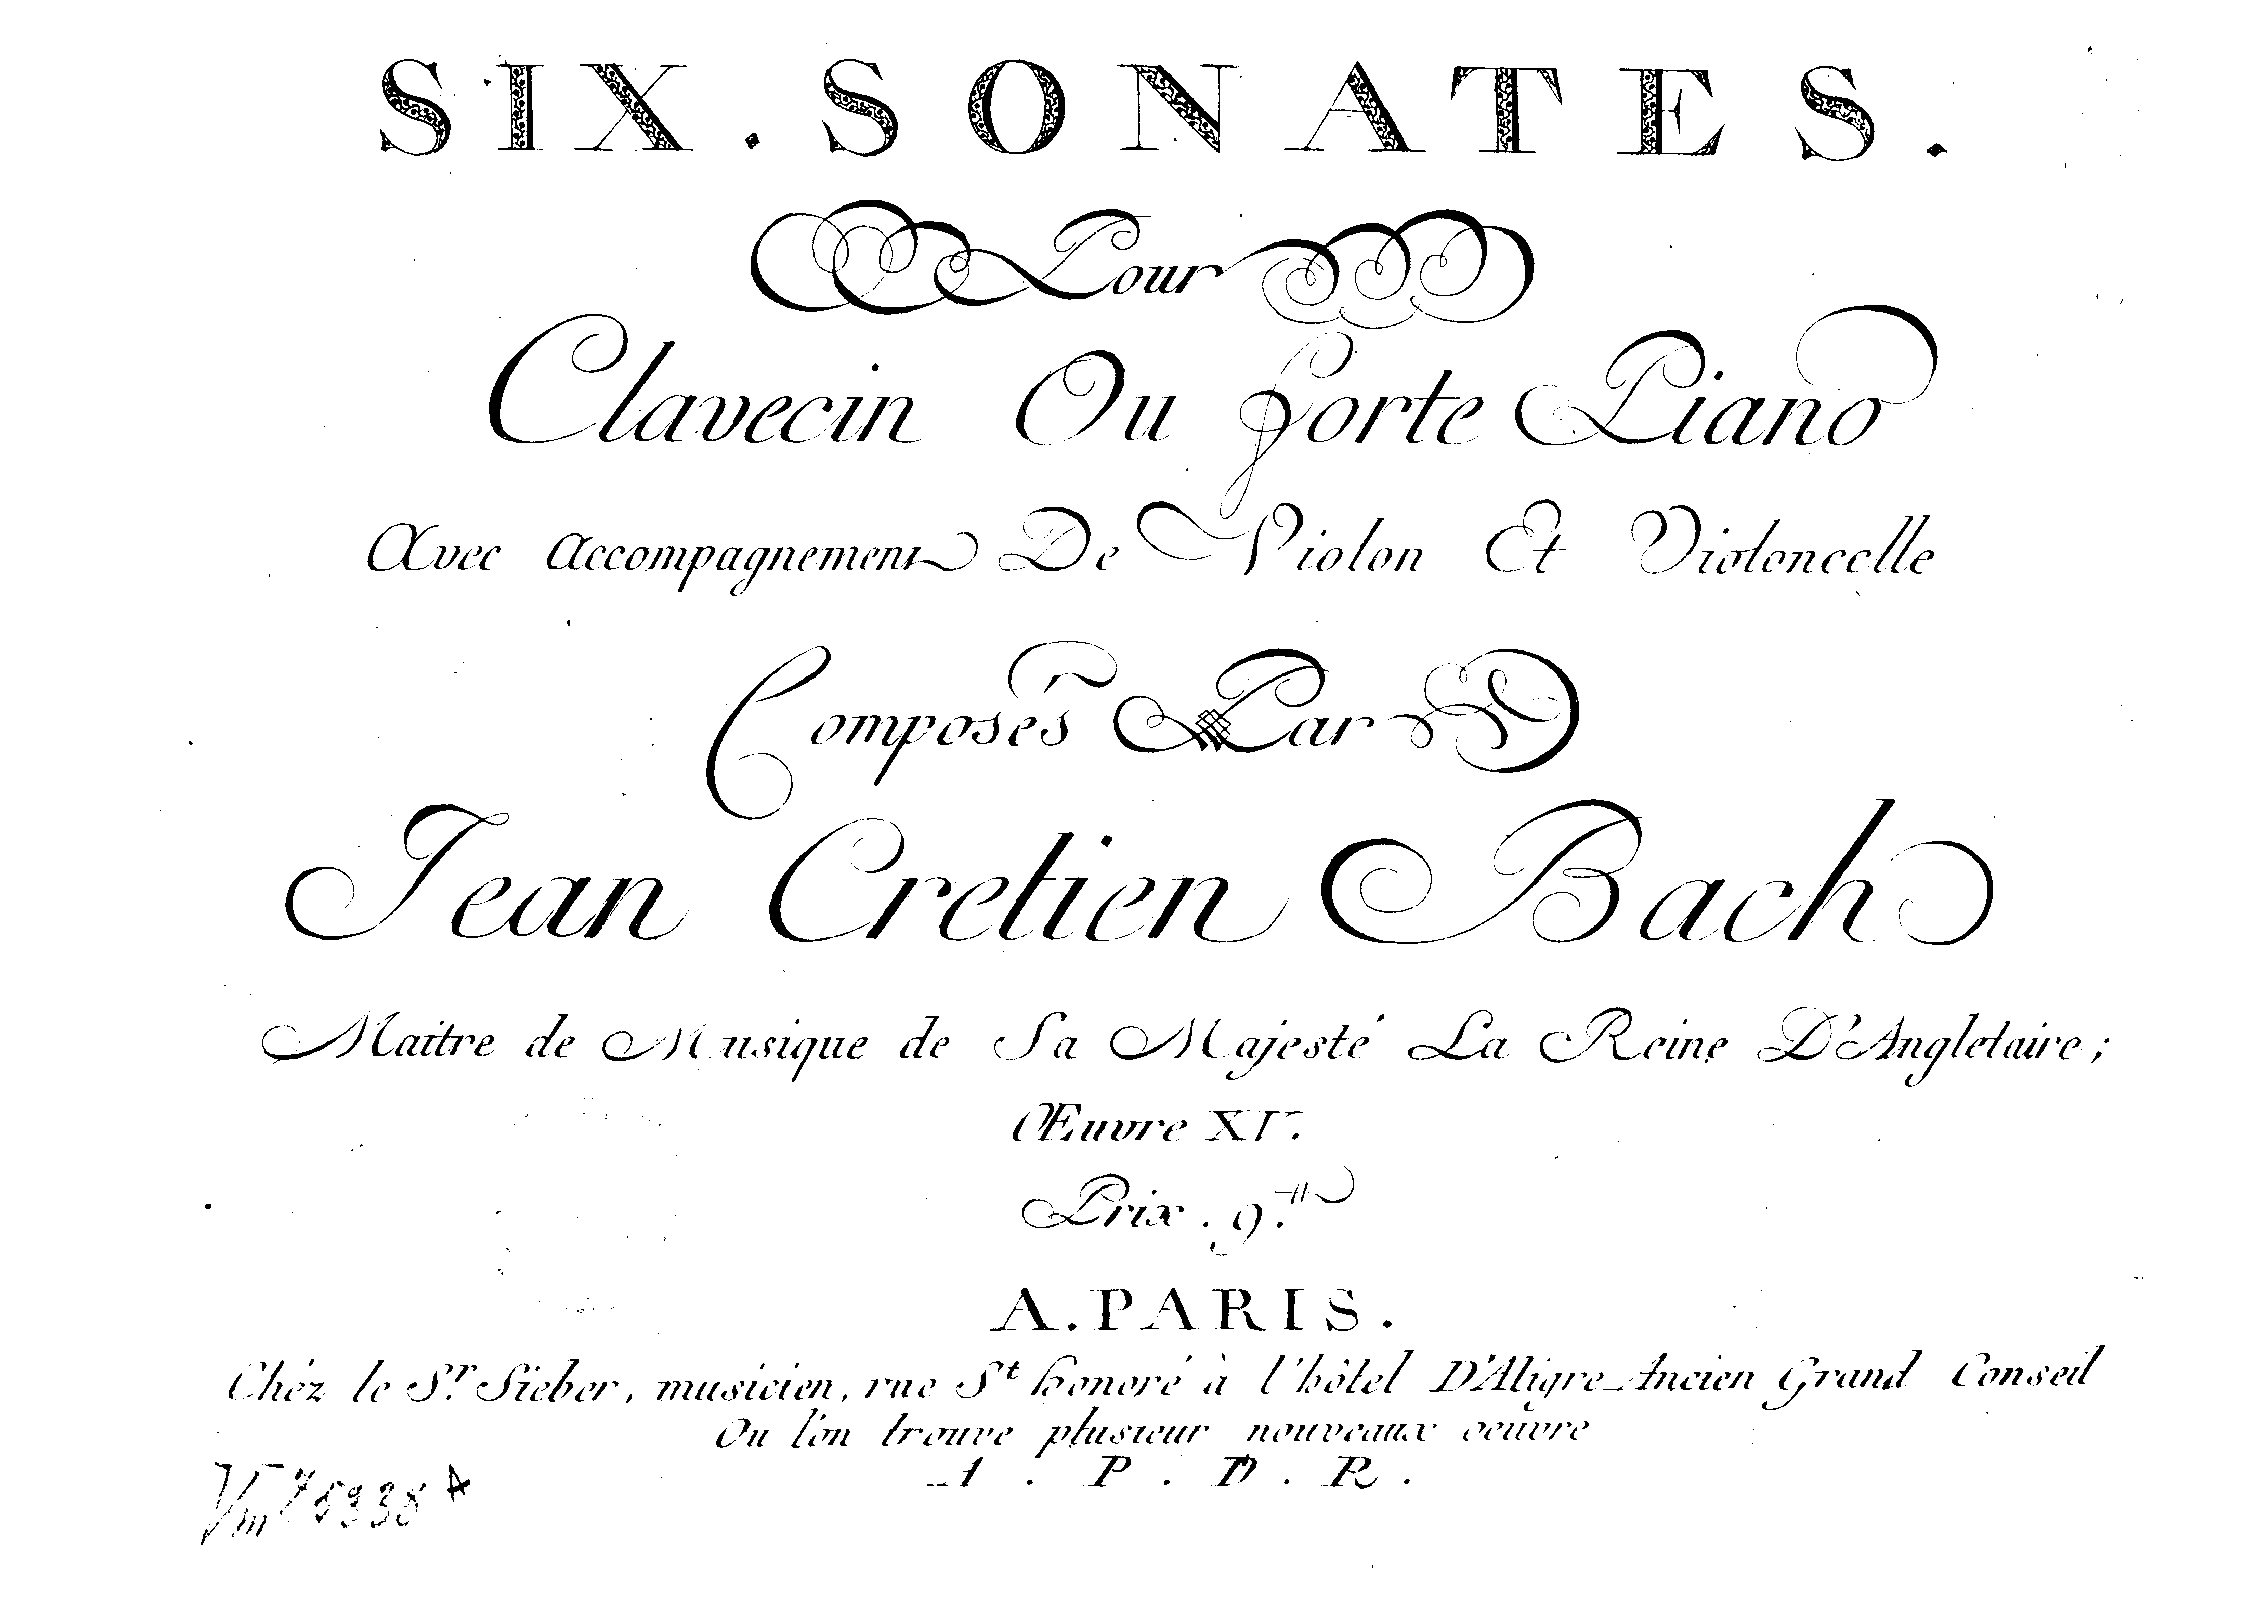 SIX. SONATES.
Pour
Clavecin Ou Forte Piano
Avec accompagnement De Violon Et Violoncelle
Composés Par
Jean Cretien Bach
Maitre de Musique de Sa Majesté La Reine D'Angletaire;
Œuvre XV.
Prix. 9.
A. PARIS.
Chéz le Sr. Sieber, musicien, rue St honoré à l'hôtel D'Aligre Ancien Grand Conseil
Ou l'on trouve plusieur nouveaux oeuvre
A . P . D . R .
Vm7 5938 A